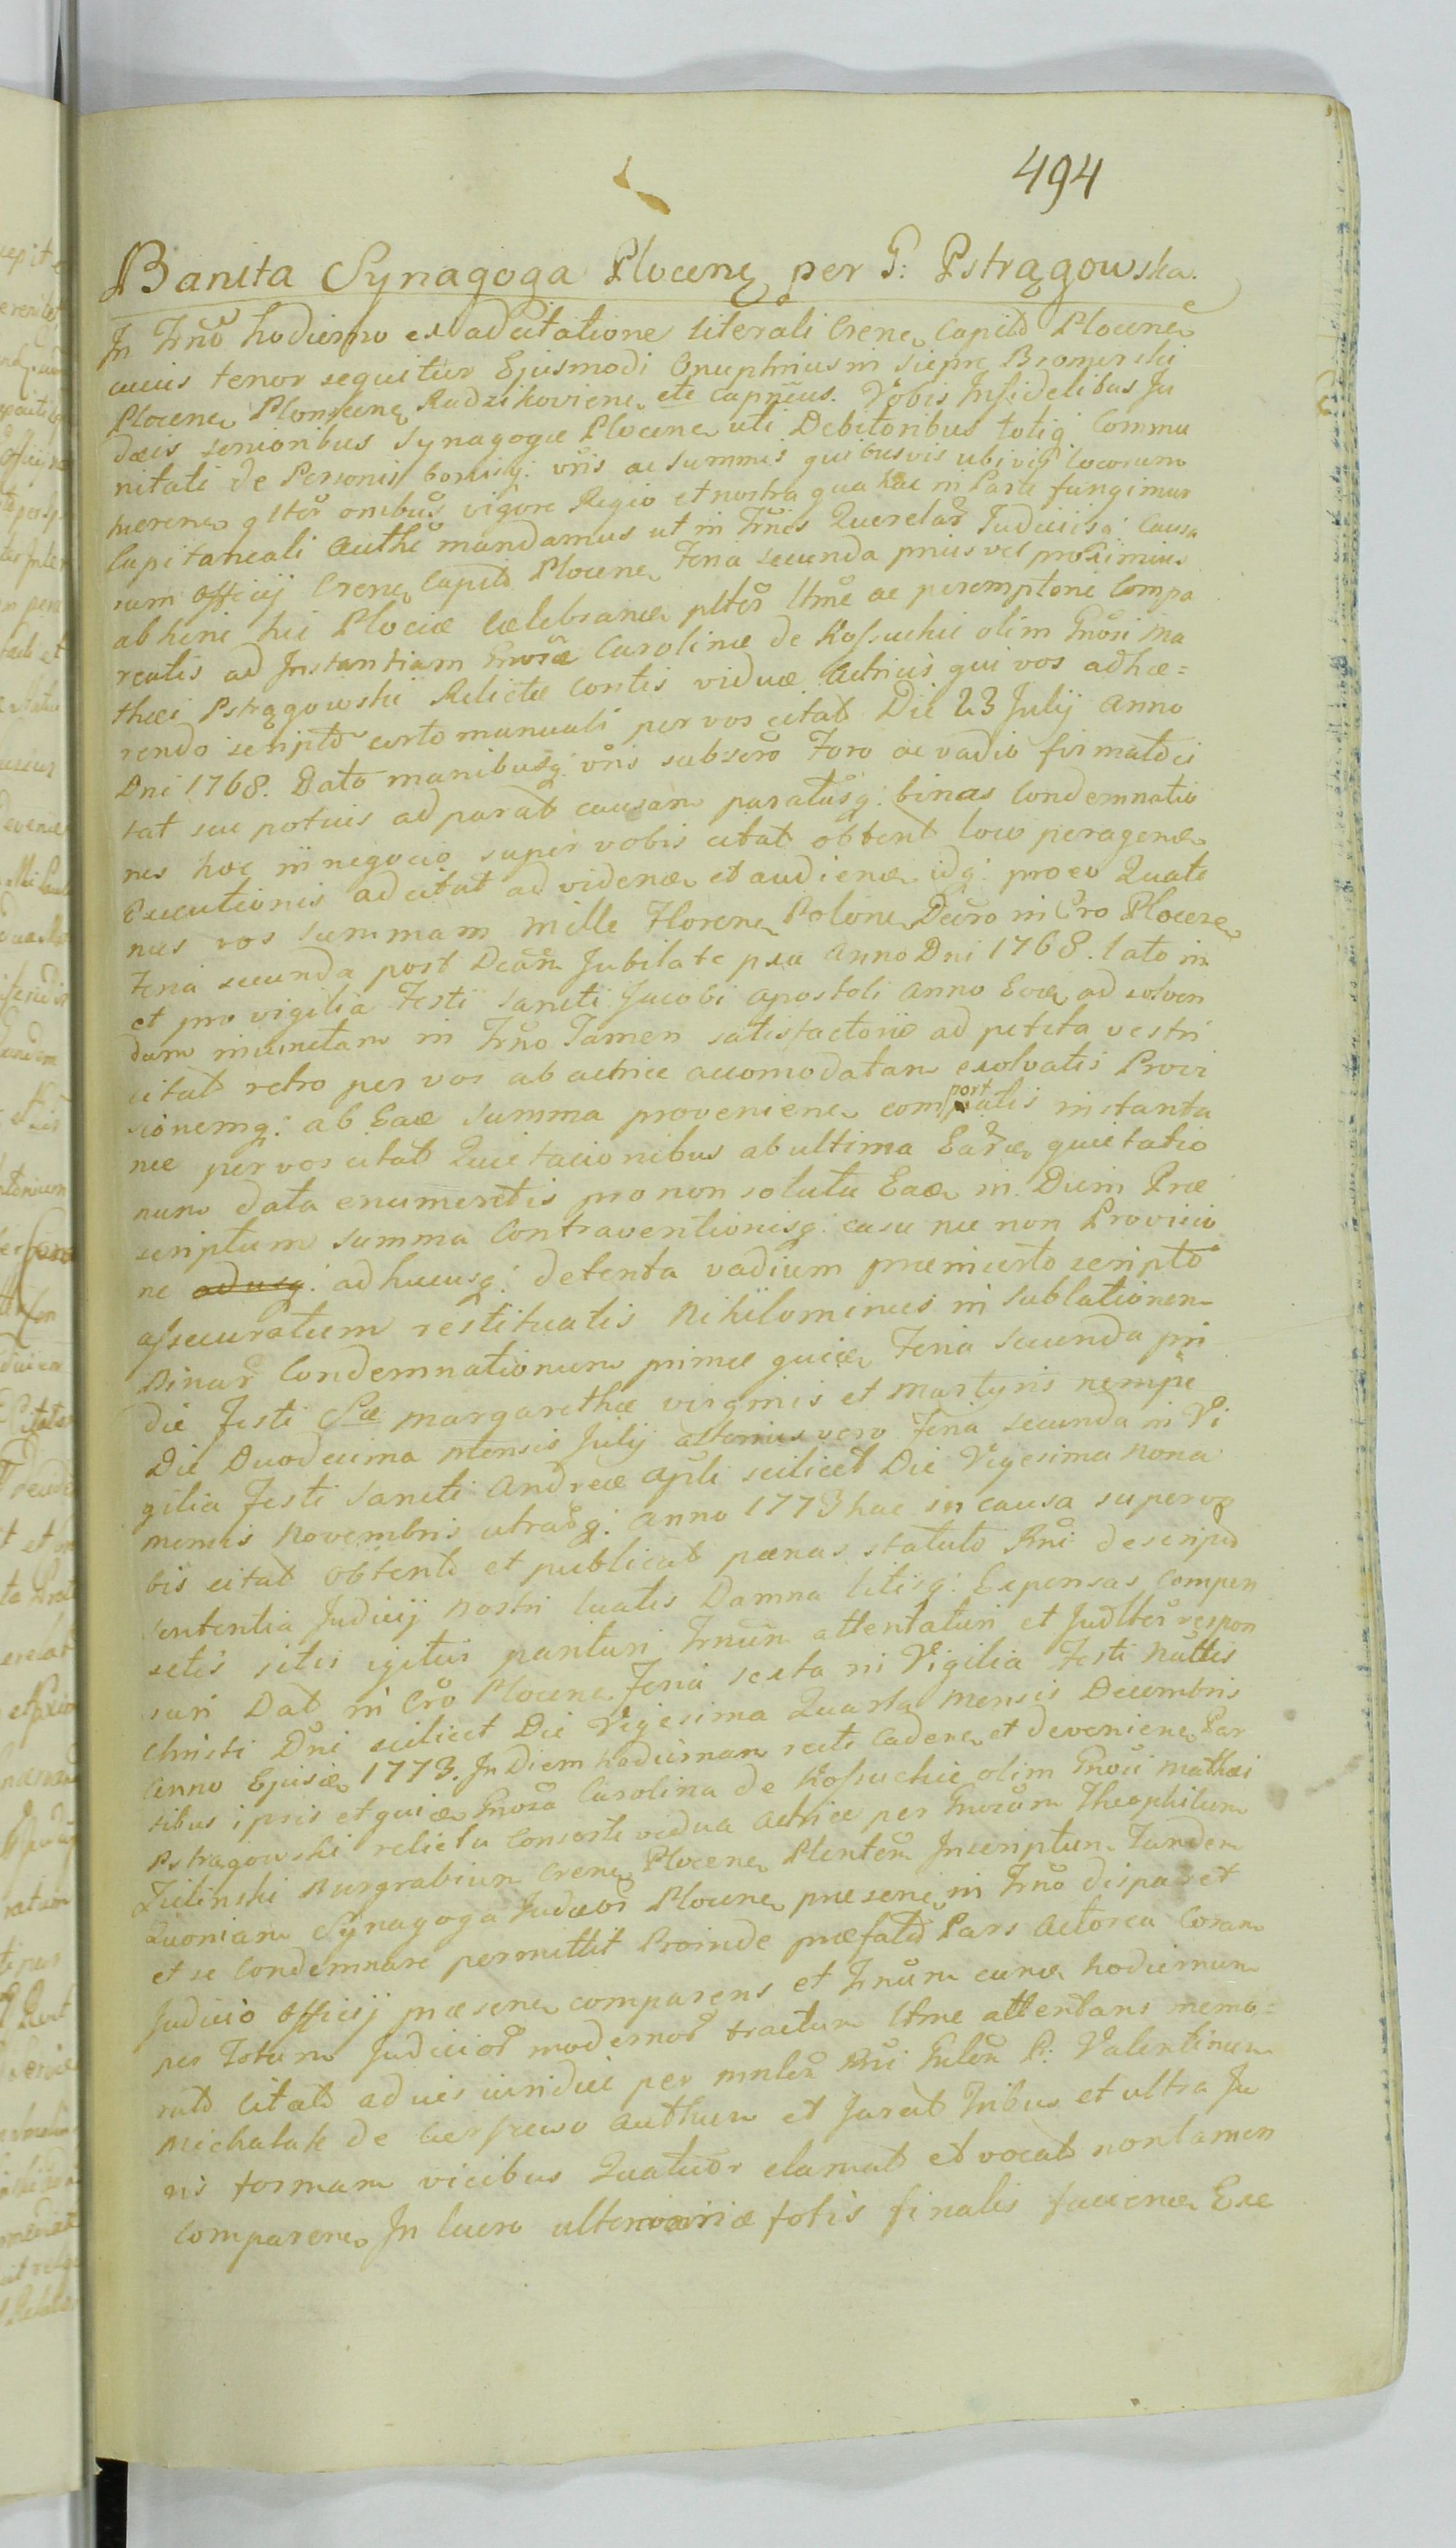 494
Banita Synagoga Plocenę per G: Pstrągowska.
In Trno hodierno ex adcitatione literali Crenę Capitd Plocenę
cuius tenor sequitur Ejusmodi Onuphrius in Siepre Bromirski
Plocenę Plonscenę Radzikoviene etc Capneus. Vobis Infidelibus Ju
dæis senioribus Synagogæ Plocenę uti Debitoribus totiq Commu
nitati de Personis bonisq: vris ac summis quibusvis ubivis locorum
hærene gltēr onibus vigore Regio et nostra qua hac in Parte fungimur
Capitaneali Authē mandamus ut in Trnis Querelar Judiciisq: Causa
rum Officij Crenę Capitd Plocenę Feria secunda prius vel proximius
abhinc hic Plociæ Celebranæ pltēr ltme ac peremptorie Compa
reatis ad Instantiam Gnosæ Carolinæ de Kossuchii olim Gnosi Ma
thæi Pstrągowski Relictæ Contis viduæ Actricis qui vos adhæ=
rendo scriptd certo manuali per vos citat Die 23 Julij Anno
Dni 1768. Dato manibusq: vris subscro Foro ac vadio firmatd ci
tat seu potius ad parat causam paratusq: binas Condemnatio
nes hoc in negocio super vobis citat obtent loco peragenæ
Executionis adcitat ad videnæ et audienæ idq: pro eo Quate
nus vos summam mille Florenę Polone Decro in Cro Plocene
Feria secunda post Dcam Jubilate pxa Anno Dni 1768. lato in
et pro vigilia Festi Sancti Jacobi Apostoli Anno Eoæ ad solven
dam iniunctam in Trno Tamen satisfactorio ad petita vestri
citat retro per vos ab actrice accomodatam exolvatis Provi
sionemq: ab Eaæ summa proveniene comportatis instanta
nee per vos citat Quietacionibus ab ultima Earæ quietatio
num data enumeretis pro non soluta Eaæ in Diem Præ
scriptum summa Contraventionisq: casu nec non Provisio
ne adusq: adhucusq: detenta vadium præinserto scripto
assecuratum restituatis Nihilominus in sublationem
Binar Condemnationum primæ quiæ Feria secunda pri
die Festi Sæ Margarethæ virginis et Martyris nempe
Die Duodecima Mensis Julij alterius vero Feria secunda in Vi
gilia Festi Sancti Andreæ Apli scilicet Die Vigesima Nona
mensis Novembris utraqq: Anno 1773 hac in causa super vo
bis citat obtent et publicat pænas statuto Rni descript
sententia Judicij Nostri luatis Damna litisq: Expensas Compen
setis sitis igitur parituri Trnum attentaturi et Judlter respon
suri Dat in Cro Plocene Feria sexta in Vigilia Festi Nattis
Christi Dni scilicet Die Vigesima Quarta Mensis Decembris
Anno Ejusæ 1773. In Diem hodiernam recte Cadene et deveniene Par
tibus ipsis et quiæ Gnosa Carolina de Kossuchie olim Gnosi Mathæi
Pstragowski relicta Consorte vidua Actrice per Gnosum Theophilum
Zielinski Burgrabium Crene Plocene Plentem Inscriptum Tandem
Quoniam Synagoga Judæor Plocene præsene in Trno disparet
et se Condemnare permittit Proinde præfatd Pars Actorea Coram
Judicio Officij præsene comparens et Trnum eunæ hodiernum
per Totum Judicior modernor tractum ltme attentans memo=
ratd Citatd aduis iuridici per mnlem Rni Gnlem P: Valentinum
Michalak de authum et Jurat Tribus et ultra Ju
ris formam vicibus Quatuor clamat et vocat non tamen
comparene In lucro ulterioriæ fotis finalis faciene Exe